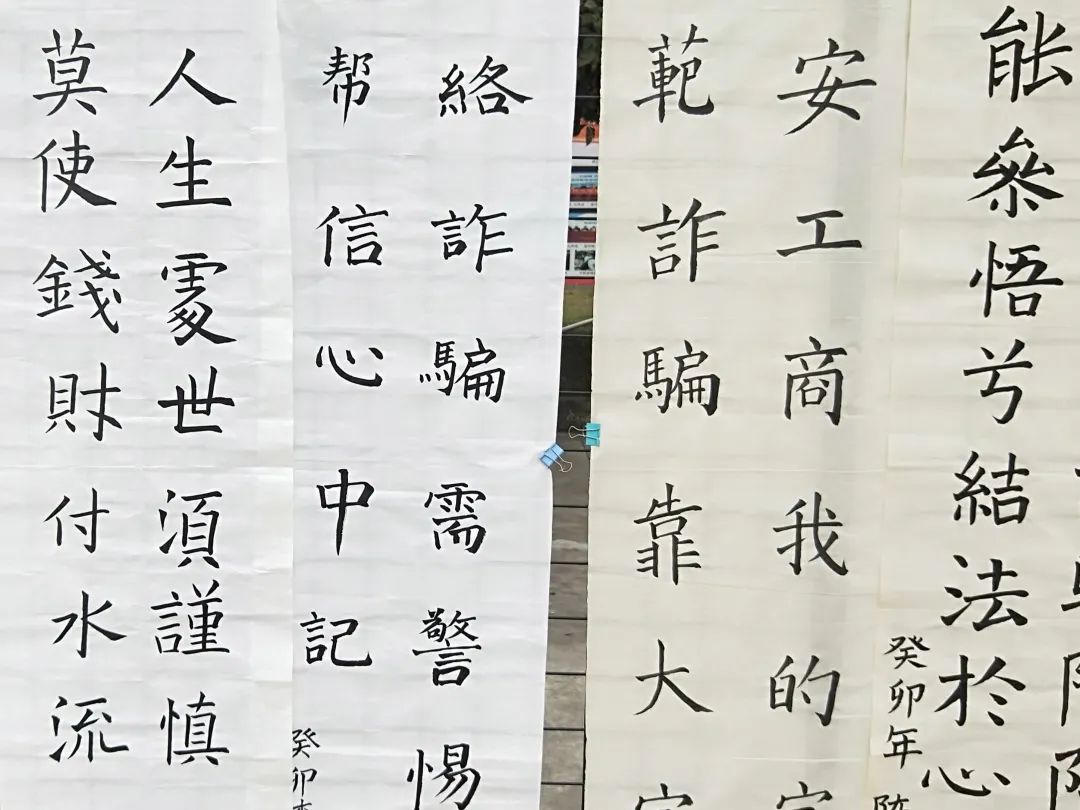 能參悟兮結法於心
癸卯年
安工商我的
範詐騙靠大
絡詐騙需警惕
帮信心中記
癸卯
人生處世湏謹慎
莫使錢財付水流